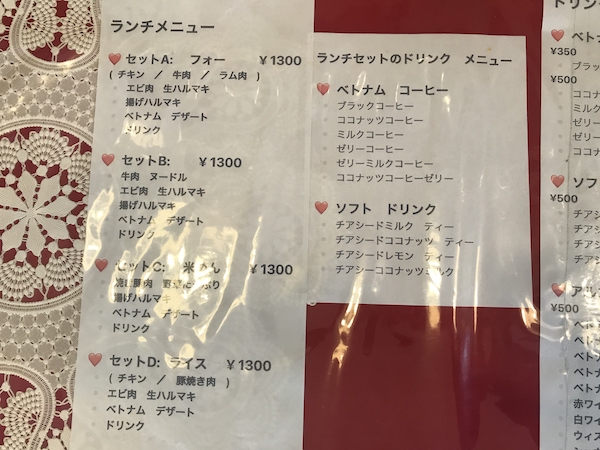 ランチメニュー
セットA: フォー ￥1300
( チキン / 牛肉 / ラム肉 )
エビ肉 生ハルマキ
揚げハルマキ
ベトナム デザート
ドリンク
セットB: ￥1300
牛肉 ヌードル
エビ肉 生ハルマキ
揚げハルマキ
ベトナム デザート
ドリンク
セットC: 米めん ￥1300
焼き豚肉
揚げハルマキ
ベトナム デザート
ドリンク
セットD: ライス ￥1300
( チキン / 豚焼き肉 )
エビ肉 生ハルマキ
ベトナム デザート
ドリンク
ランチセットのドリンク メニュー
ベトナム コーヒー
ブラックコーヒー
ココナッツコーヒー
ミルクコーヒー
ゼリーコーヒー
ゼリーミルクコーヒー
ココナッツコーヒーゼリー
ソフト ドリンク
チアシードミルク ティー
チアシードココナッツ ティー
チアシードレモン ティー
チアシーココナッツミルク
ドリン
ベトナ
¥350
¥500
ココナ
ミルク
ゼリー
ゼリー
ココナ
ソフ
¥500
チアシ
チアシ
チアシ
チアシ
アル
¥500
ベト
ベト
ベト
ベト
ベト
赤ワイ
白ワイ
ウィス